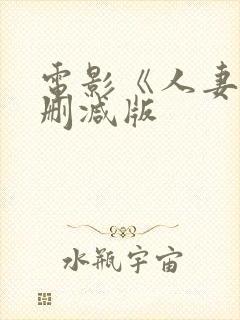 電影《人妻
刪减版
水瓶宇宙